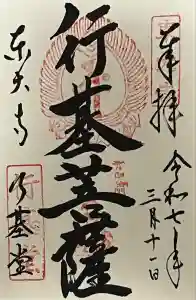 奉拝
令和七年
三月十一日
行基菩薩
東大寺
行基堂